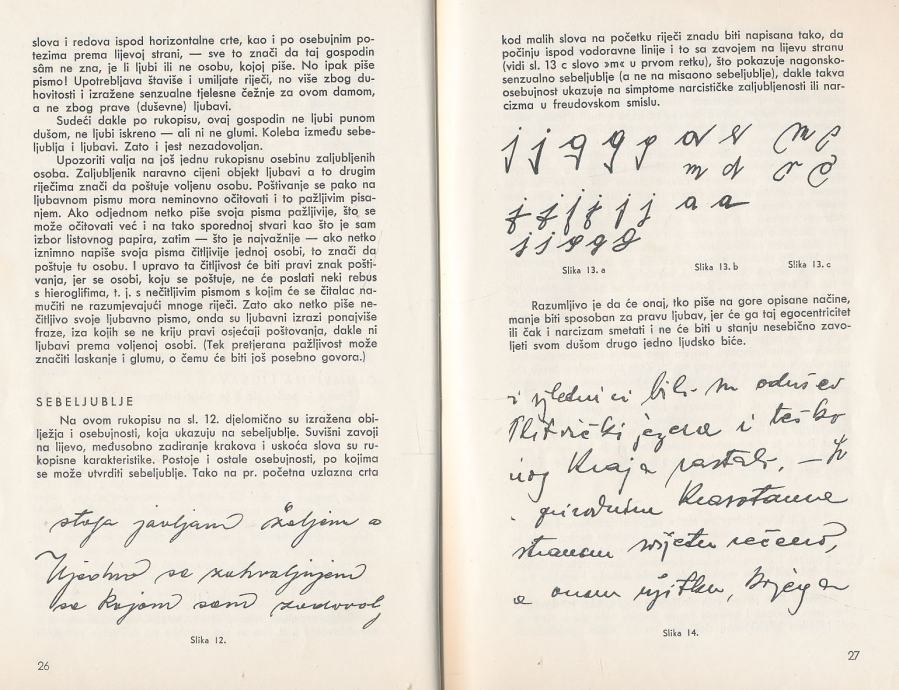 slova i redova ispod horizontalne crte, kao i po osebujnim po-
tezima prema lijevoj strani, — sve to znači da taj gospodin
sâm ne zna, je li ljubi ili ne osobu, kojoj piše. No ipak piše
pismo! Upotrebljava štaviše i umiljate riječi, no više zbog du-
hovitosti i izražene senzualne tjelesne čežnje za ovom damom,
a ne zbog prave (duševne) ljubavi.
Sudeći dakle po rukopisu, ovaj gospodin ne ljubi punom
dušom, ne ljubi iskreno — ali ni ne glumi. Koleba između sebe-
ljublja i ljubavi. Zato i jest nezadovoljan.
Upozoriti valja na još jednu rukopisnu osebinu zaljubljenih
osoba. Zaljubljenik naravno cijeni objekt ljubavi a to drugim
riječima znači da poštuje voljenu osobu. Poštivanje se pako na
ljubavnom pismu mora neminovno očitovati i to pažljivim pisa-
njem. Ako odjednom netko piše svoja pisma pažljivije, što se
može očitovati već i na tako sporednoj stvari kao što je sam
izbor listovnog papira, zatim — što je najvažnije — ako netko
iznimno napiše svoja pisma čitljivije jednoj osobi, to znači da
poštuje tu osobu. I upravo ta čitljivost će biti pravi znak pošti-
vanja, jer se osobi, koju se poštuje, ne će poslati neki rebus
s hieroglifima, t. j. s nečitljivim pismom s kojim će se čitalac na-
mučiti ne razumjevajući mnoge riječi. Zato ako netko piše ne-
čitljivo svoje ljubavno pismo, onda su ljubavni izrazi ponajviše
fraze, iza kojih se ne kriju pravi osjećaji poštovanja, dakle ni
ljubavi prema voljenoj osobi. (Tek pretjerana pažljivost može
značiti laskanje i glumu, o čemu će biti još posebno govora.)
SEBELJUBLJE
Na ovom rukopisu na sl. 12. djelomično su izražena obi-
lježja i osebujnosti, koja ukazuju na sebeljublje. Suvišni zavoji
na lijevo, međusobno zadiranje krakova i uskoća slova su ru-
kopisne karakteristike. Postoje i ostale osebujnosti, po kojima
se može utvrditi sebeljublje. Tako na pr. početna uzlazna crta
stoga javljam željom a
Ujedno se zahvaljujem
sa kojom sam zadovolj
Slika 12.
26
kod malih slova na početku riječi znadu biti napisana tako, da
počinju ispod vodoravne linije i to sa zavojem na lijevu stranu
(vidi sl. 13 c slovo »m« u prvom retku), što pokazuje nagonsko-
senzualno sebeljublje (a ne na misaono sebeljublje), dakle takva
osebujnost ukazuje na simptome narcističke zaljubljenosti ili nar-
cizma u freudovskom smislu.
j j g g g
m d
a a
Slika 13. a
Slika 13. b
Slika 13. c
Razumljivo je da će onaj, tko piše na gore opisane načine,
manje biti sposoban za pravu ljubav, jer će ga taj egocentricitet
ili čak i narcizam smetati i ne će biti u stanju nesebično zavo-
ljeti svom dušom drugo jedno ljudsko biće.
i izletnici bili su odušev
Plitvički jezera i teško
nog kraja rastali, —
prirodnim krasotama
stranom svijetu rečeno,
a onom užitku,
Slika 14.
27